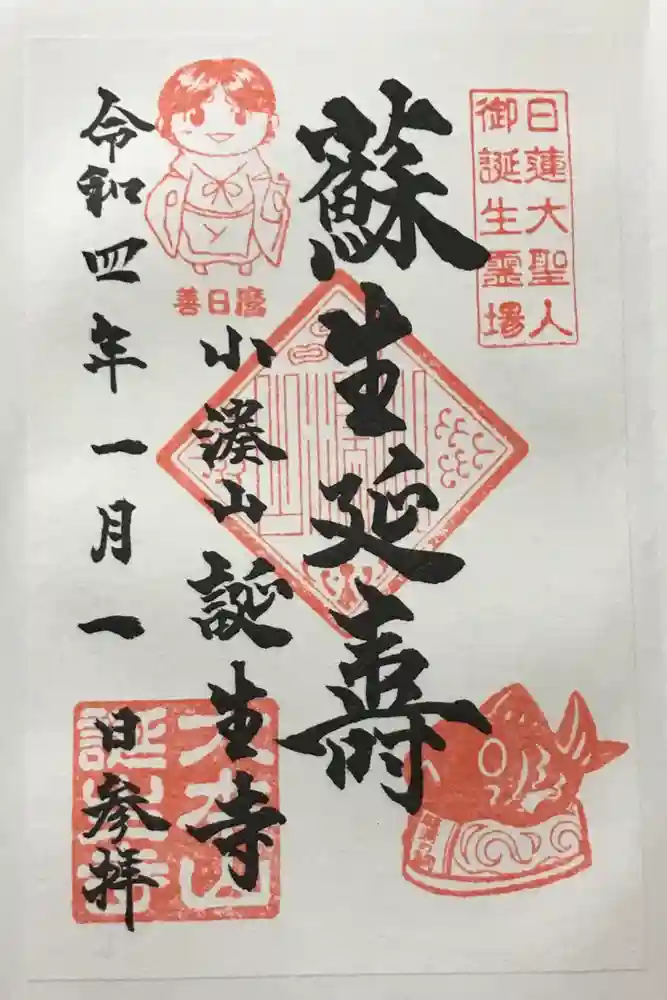 日蓮大聖人
御誕生霊場
蘇生延壽
小湊山 誕生寺
令和四年一月一日参拝
善日麿
大本山
誕生寺